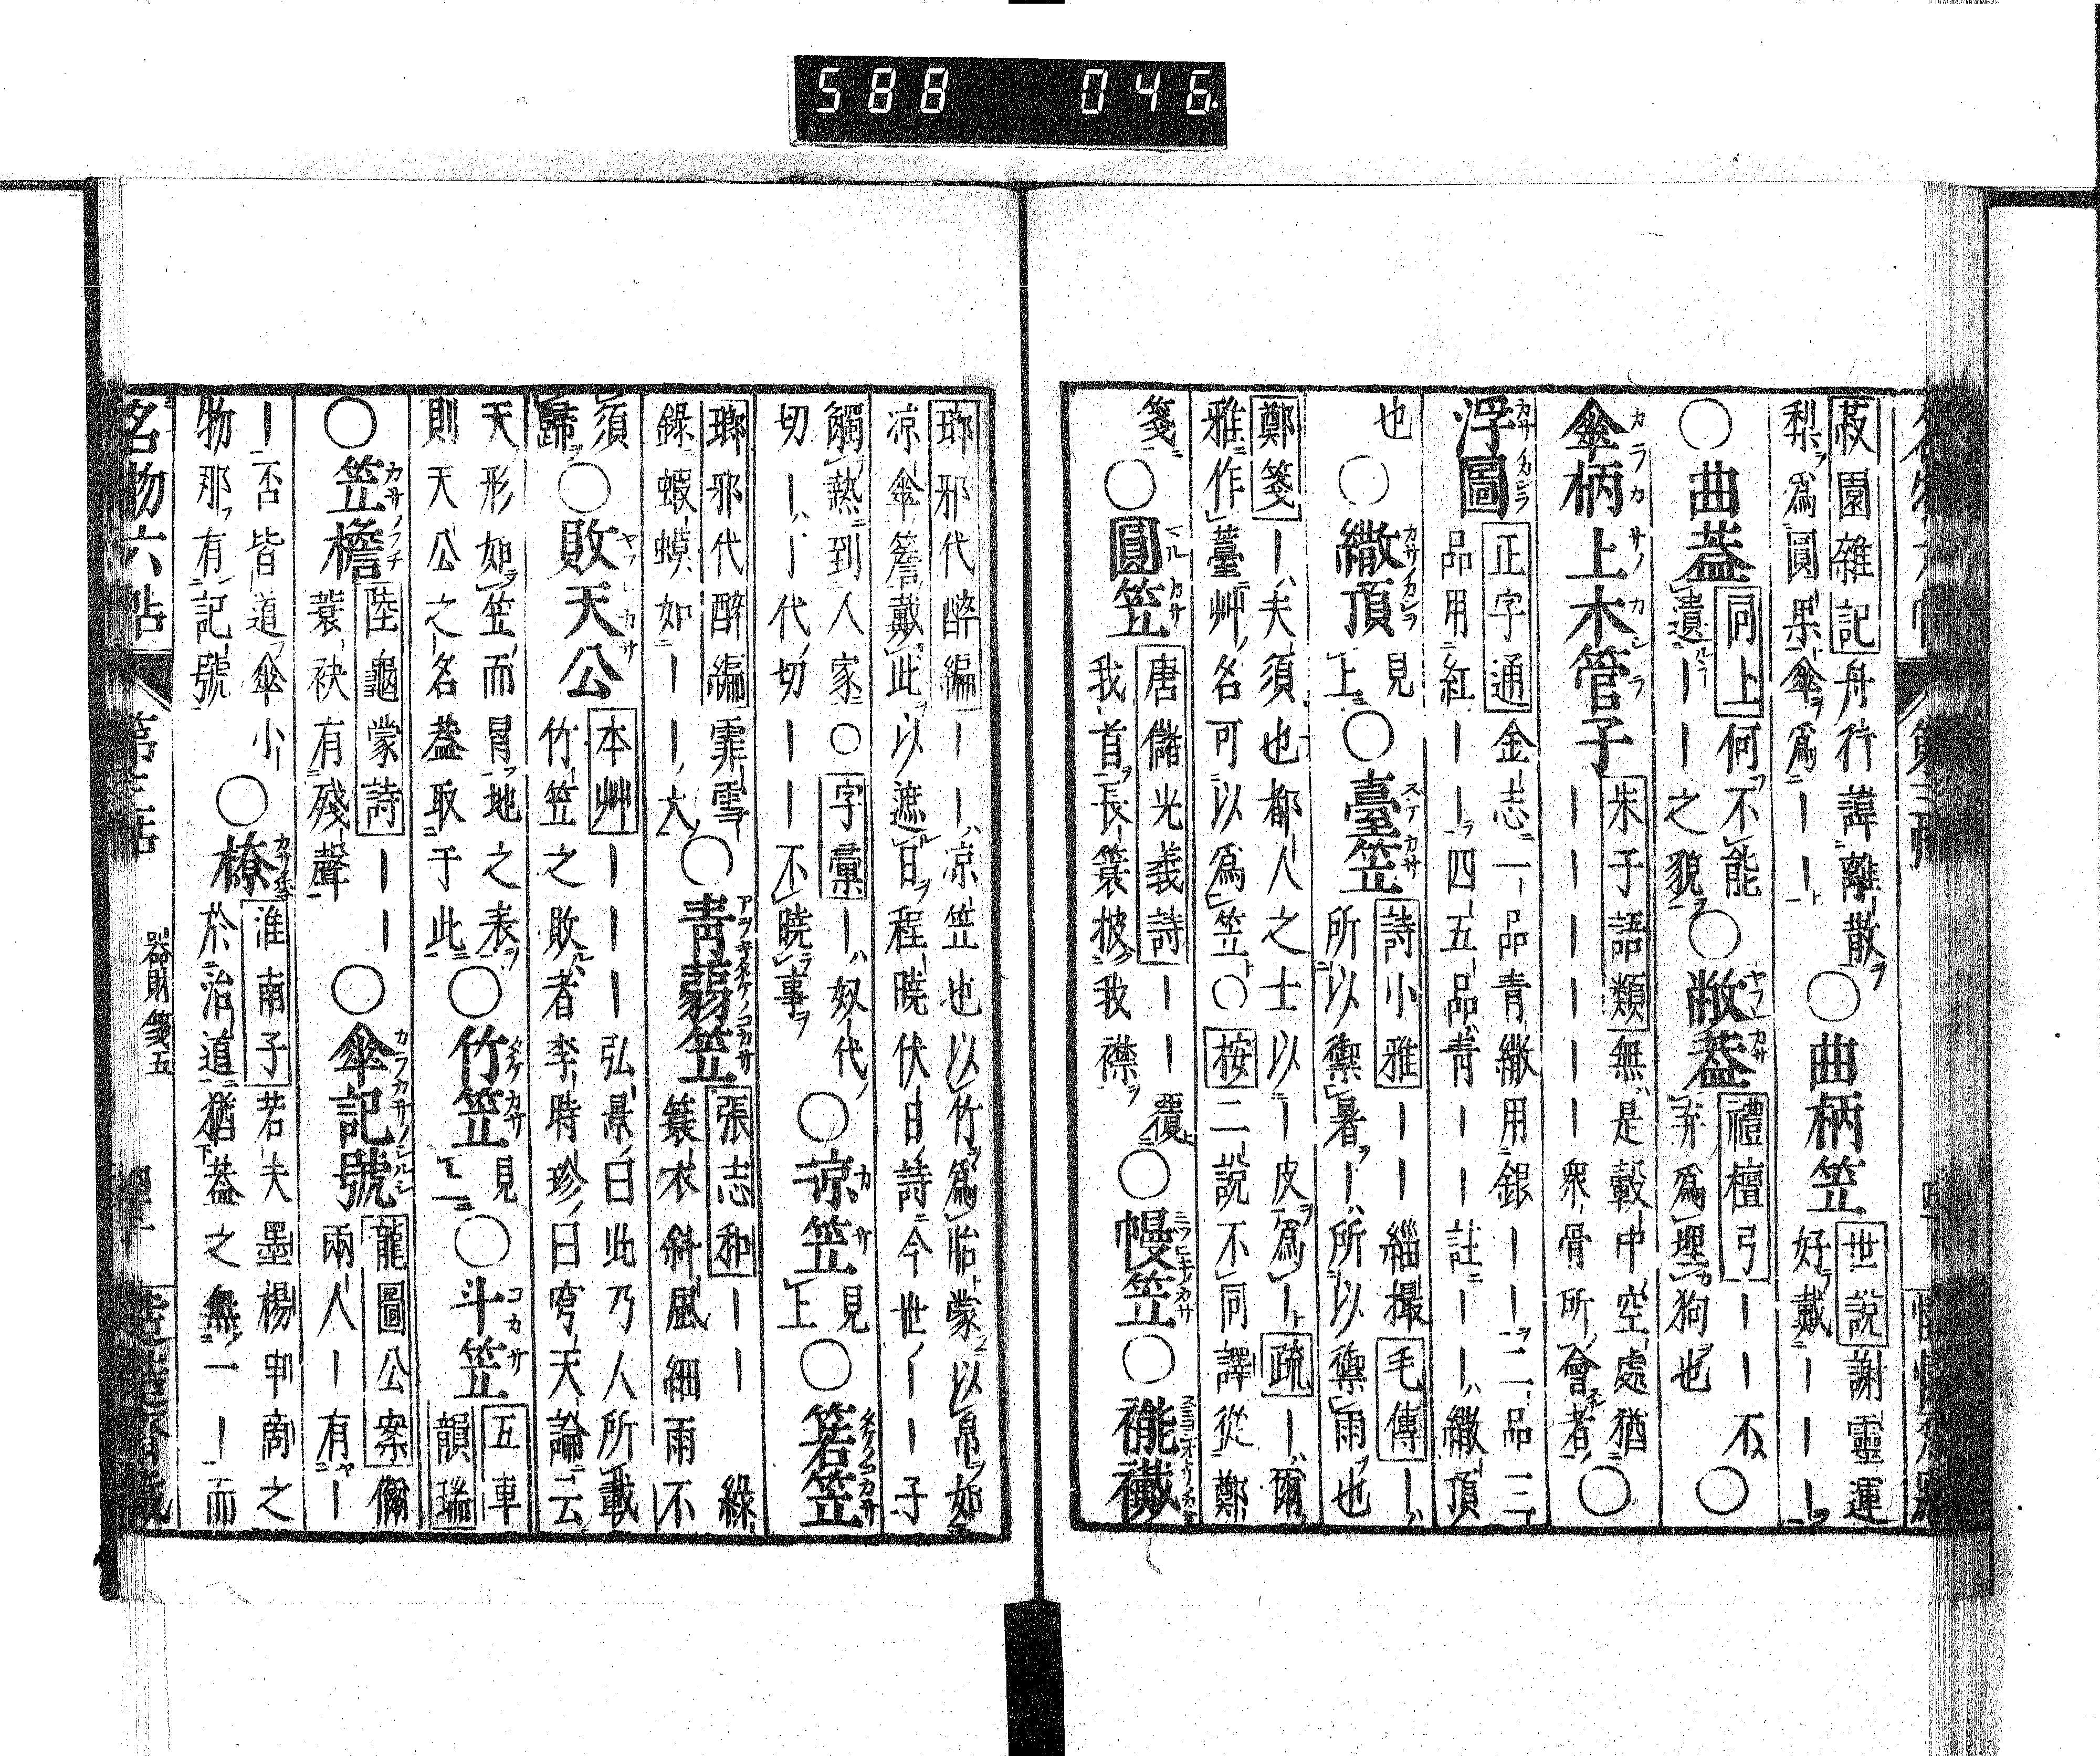 588 046.
菽園雜記舟行諱離散
梨爲圓果傘爲｜｜
○曲柄笠
世說謝靈運
好戴｜｜｜
○曲蓋
同上何不能
遺｜｜之貌
○敝蓋
禮檀弓｜｜不
弃爲埋狗也
○
傘柄上木管子
朱子語類無是轂中空處猶
｜｜｜｜｜｜衆骨所會者
○
浮圖
正字通金志一品青繖用銀｜｜二品三
品用紅｜｜四五品青｜｜註｜｜繖頂
也
○繖頂
見上
○臺笠
詩小雅｜｜緇撮毛傳｜
所以禦暑｜所以禦雨也
鄭箋｜夫須也都人之士以｜皮爲｜疏｜爾
雅作薹艸名可以爲笠○按二說不同譯從鄭
箋
○圓笠
唐儲光羲詩｜｜覆
我首長簑披我襟
○幔笠
○褦襶
瑯邪代醉編｜｜凉笠也以竹爲胎蒙以帛如
凉傘簷戴此以遮日程曉伏日詩今世｜｜子
觸熱到人家○字彙｜奴代
切｜丁代切｜｜不曉事
○凉笠
見上
○箬笠
瑯邪代醉編霏雪
錄蝦蟆如｜｜大
○青蒻笠
張志和｜｜綠
簑衣斜風細雨不
須
歸
○敗天公
本艸｜｜｜弘景曰此乃人所戴
竹笠之敗者李時珍曰穹天論云
天形如笠而冒地之表
則天公之名蓋取于此
○竹笠
見上
○斗笠
五車
韻瑞
○笠檐
陸龜蒙詩｜｜
蓑袂有殘聲
○傘記號
龍圖公案儞
兩人｜有｜
｜否皆道傘小
物那有記號
○橑
淮南子若夫墨楊申商之
於治道猶蓋之無一｜而
名物六帖
第三帖
器財箋五